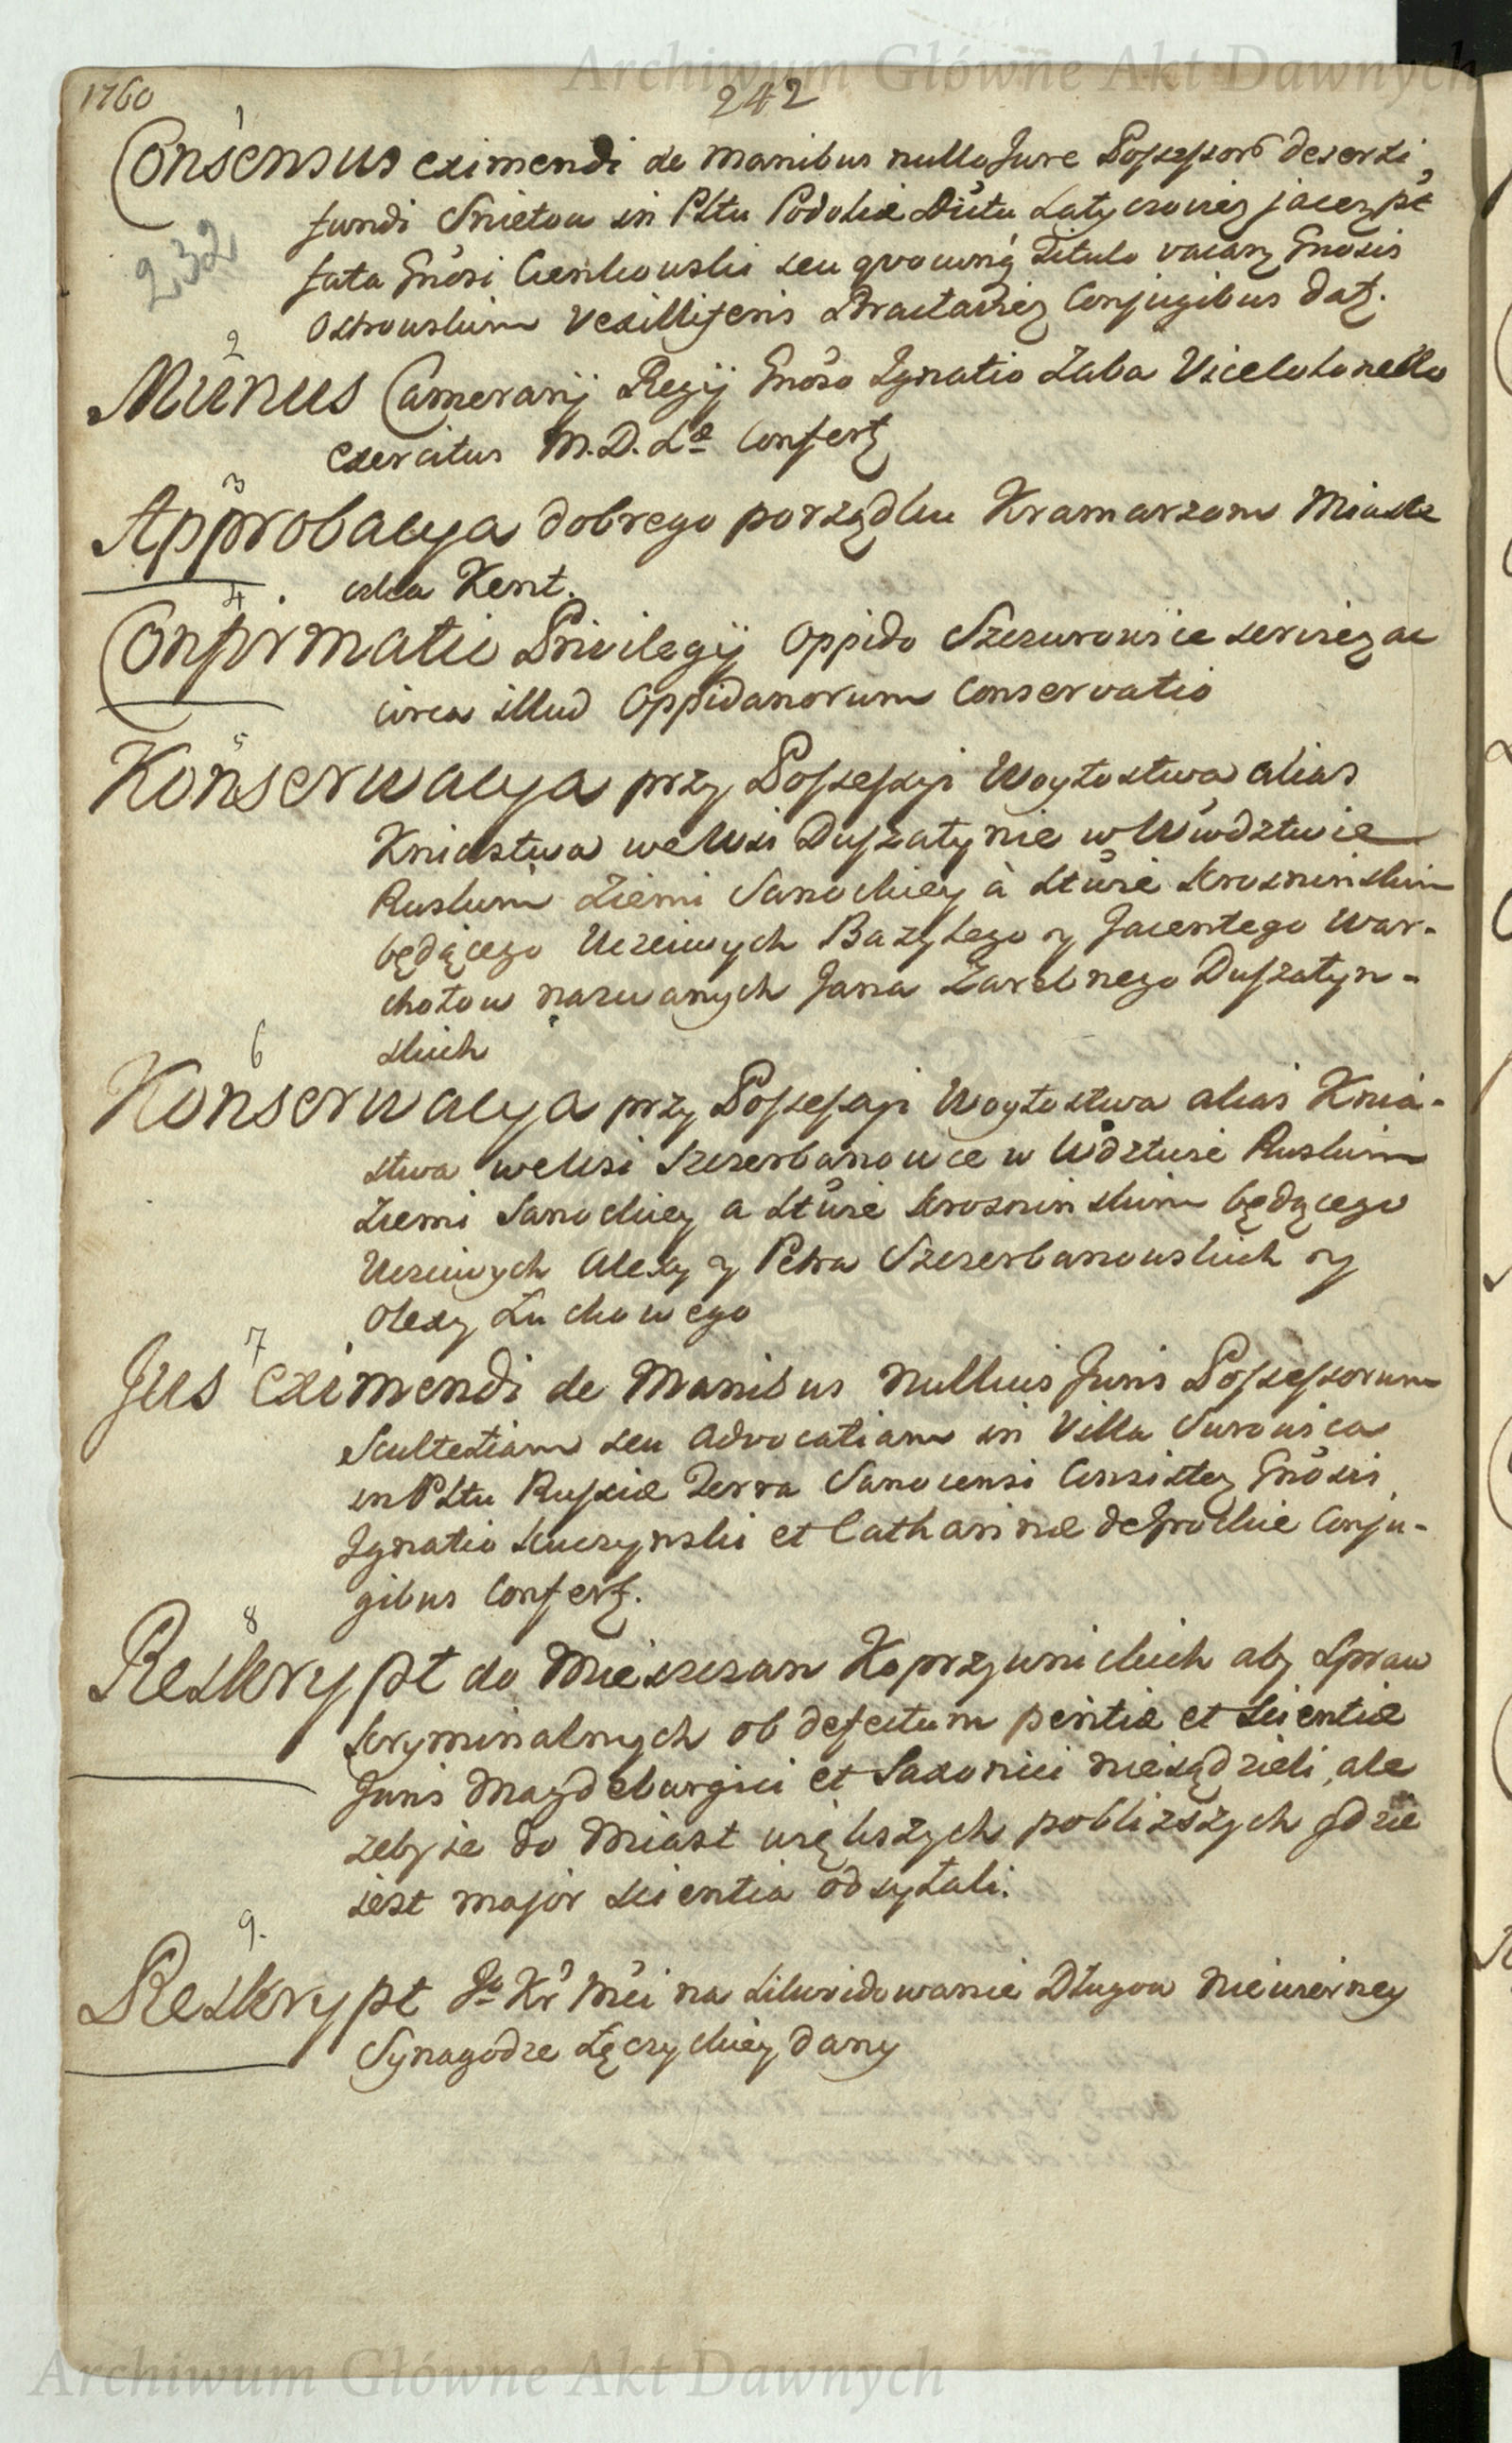 Archiwum Główne Akt Dawnych
1760
242
1
Consensus eximendi de manibus nullo Jure Possessorũ deserti
fundi Snietow in Pltu Podoliæ Districtu Latyczovien jacen pt
232
fata Gnosi Cienkowski seu qvocunq Titulo vacan Gnosis
Ostrowskim Vexilliferis Braclavien Conjugibus dat.
2
Munus Camerarij Regij Gnoso Ignatio Zaba Vicekolonello
exercitus M. D. Læ Confert
3
Approbacya dobrego porządku Kramarzom Miaste
czka Kent.
4
Confirmatio Privilegij Oppido Szczurowice servien ac
circa illud Oppidanorum Conservatio
5
Konserwacya przy Possessyi Woytostwa alias
Kniastwa we Wsi Duszatynie w Wwdztwie
Ruskim Ziemi Sanockiey à Sttwie Krosninskim
będącego Uczciwych Bazylego y Jacentego War-
chołow nazwanych Jana Zarebnego Duszatyn-
skich
6
Konserwacya przy Possessyi Woytostwa alias Knia-
stwa we Wsi Szczerbanowce w Wdztwie Ruskim
Ziemi Sanockiey a Sttwie Krosninskim będącego
Uczciwych Alexy y Petra Szczerbanowskich y
Olexy Luchowego
7
Jus eximendi de Manibus nullius Juris Possessorum
Scultetiam seu Advocatiam in Villa Surowica
in Pltu Russiæ Terra Sanocensi Consisten Gnosis
Ignatio Kuczynski et Catharinæ de Grockie Conju-
gibus Confert.
8
Reskrypt do Mieszczan Koprzywnickich aby Spraw
kryminalnych ob defectum peritiæ et scientiæ
Juris Magdeburgici et Saxonici niesądzieli, ale
zeby je do Miast większych poblizszych gdzie
jest major scientia odsyłali.
9.
Reskrypt Jo Kr Mci na Likwidowanie Długow Niewierney
Synagodze Łęczyckiey dany
Archiwum Główne Akt Dawnych